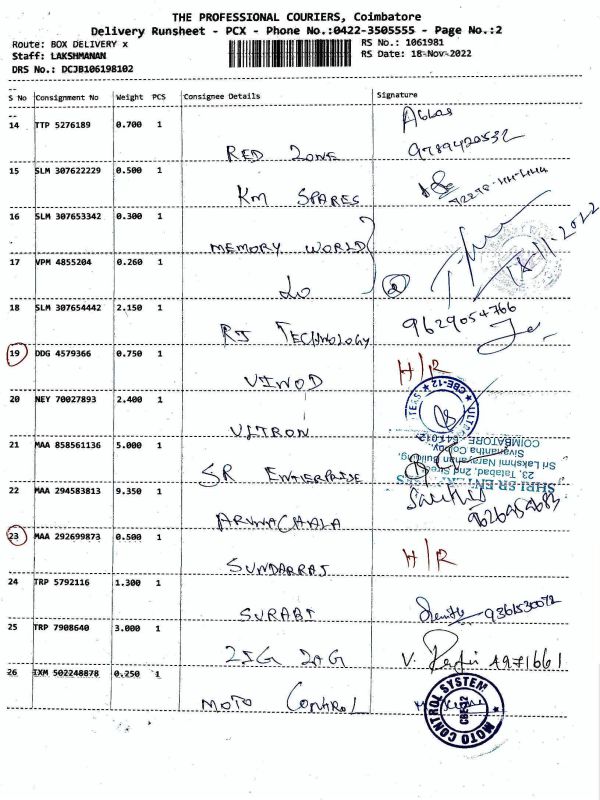 THE PROFESSIONAL COURIERS, Coimbatore
Delivery Runsheet - PCX - Phone No.:0422-3505555 - Page No.:2
Route: BOX DELIVERY x RS No.: 1061981
Staff: LAKSHMANAN RS Date: 18-Nov-2022
DRS No.: DCJB106198102
S No Consignment No Weight PCS Consignee Details Signature
14 TTP 5276189 0.700 1 Abbas
RED ZONE 9789420532
15 SLM 307622229 0.500 1
KM SPARES
16 SLM 307653342 0.300 1
MEMORY WORLD
18-11-2022
17 VPM 4855204 0.260 1
Do 2
18 SLM 307654442 2.150 1 9629054766
RJ TECHNOLOGY
19 DDG 4579366 0.750 1 H/R
VINOD
20 NEY 70027893 2.400 1 CBE-12
VLTRON
21 MAA 858561136 5.000 1
SR ENTERPRISE
SHRI SR ENTERPRISES
23, Tatabad, 2nd Street
Sri Lakshmi Narayanan Building,
Sivanantha Colony,
COIMBATORE - 641 012
22 MAA 294583813 9.350 1
ARUNACHALA
23 MAA 292699873 0.500 1 H/R
SUNDARRAJ
24 TRP 5792116 1.300 1
SURABI 9361530072
25 TRP 7908640 3.000 1
ZIG ZAG V.
26 IXM 502248878 0.250 1
MOTO CONTROL
MOTO CONTROL SYSTEM